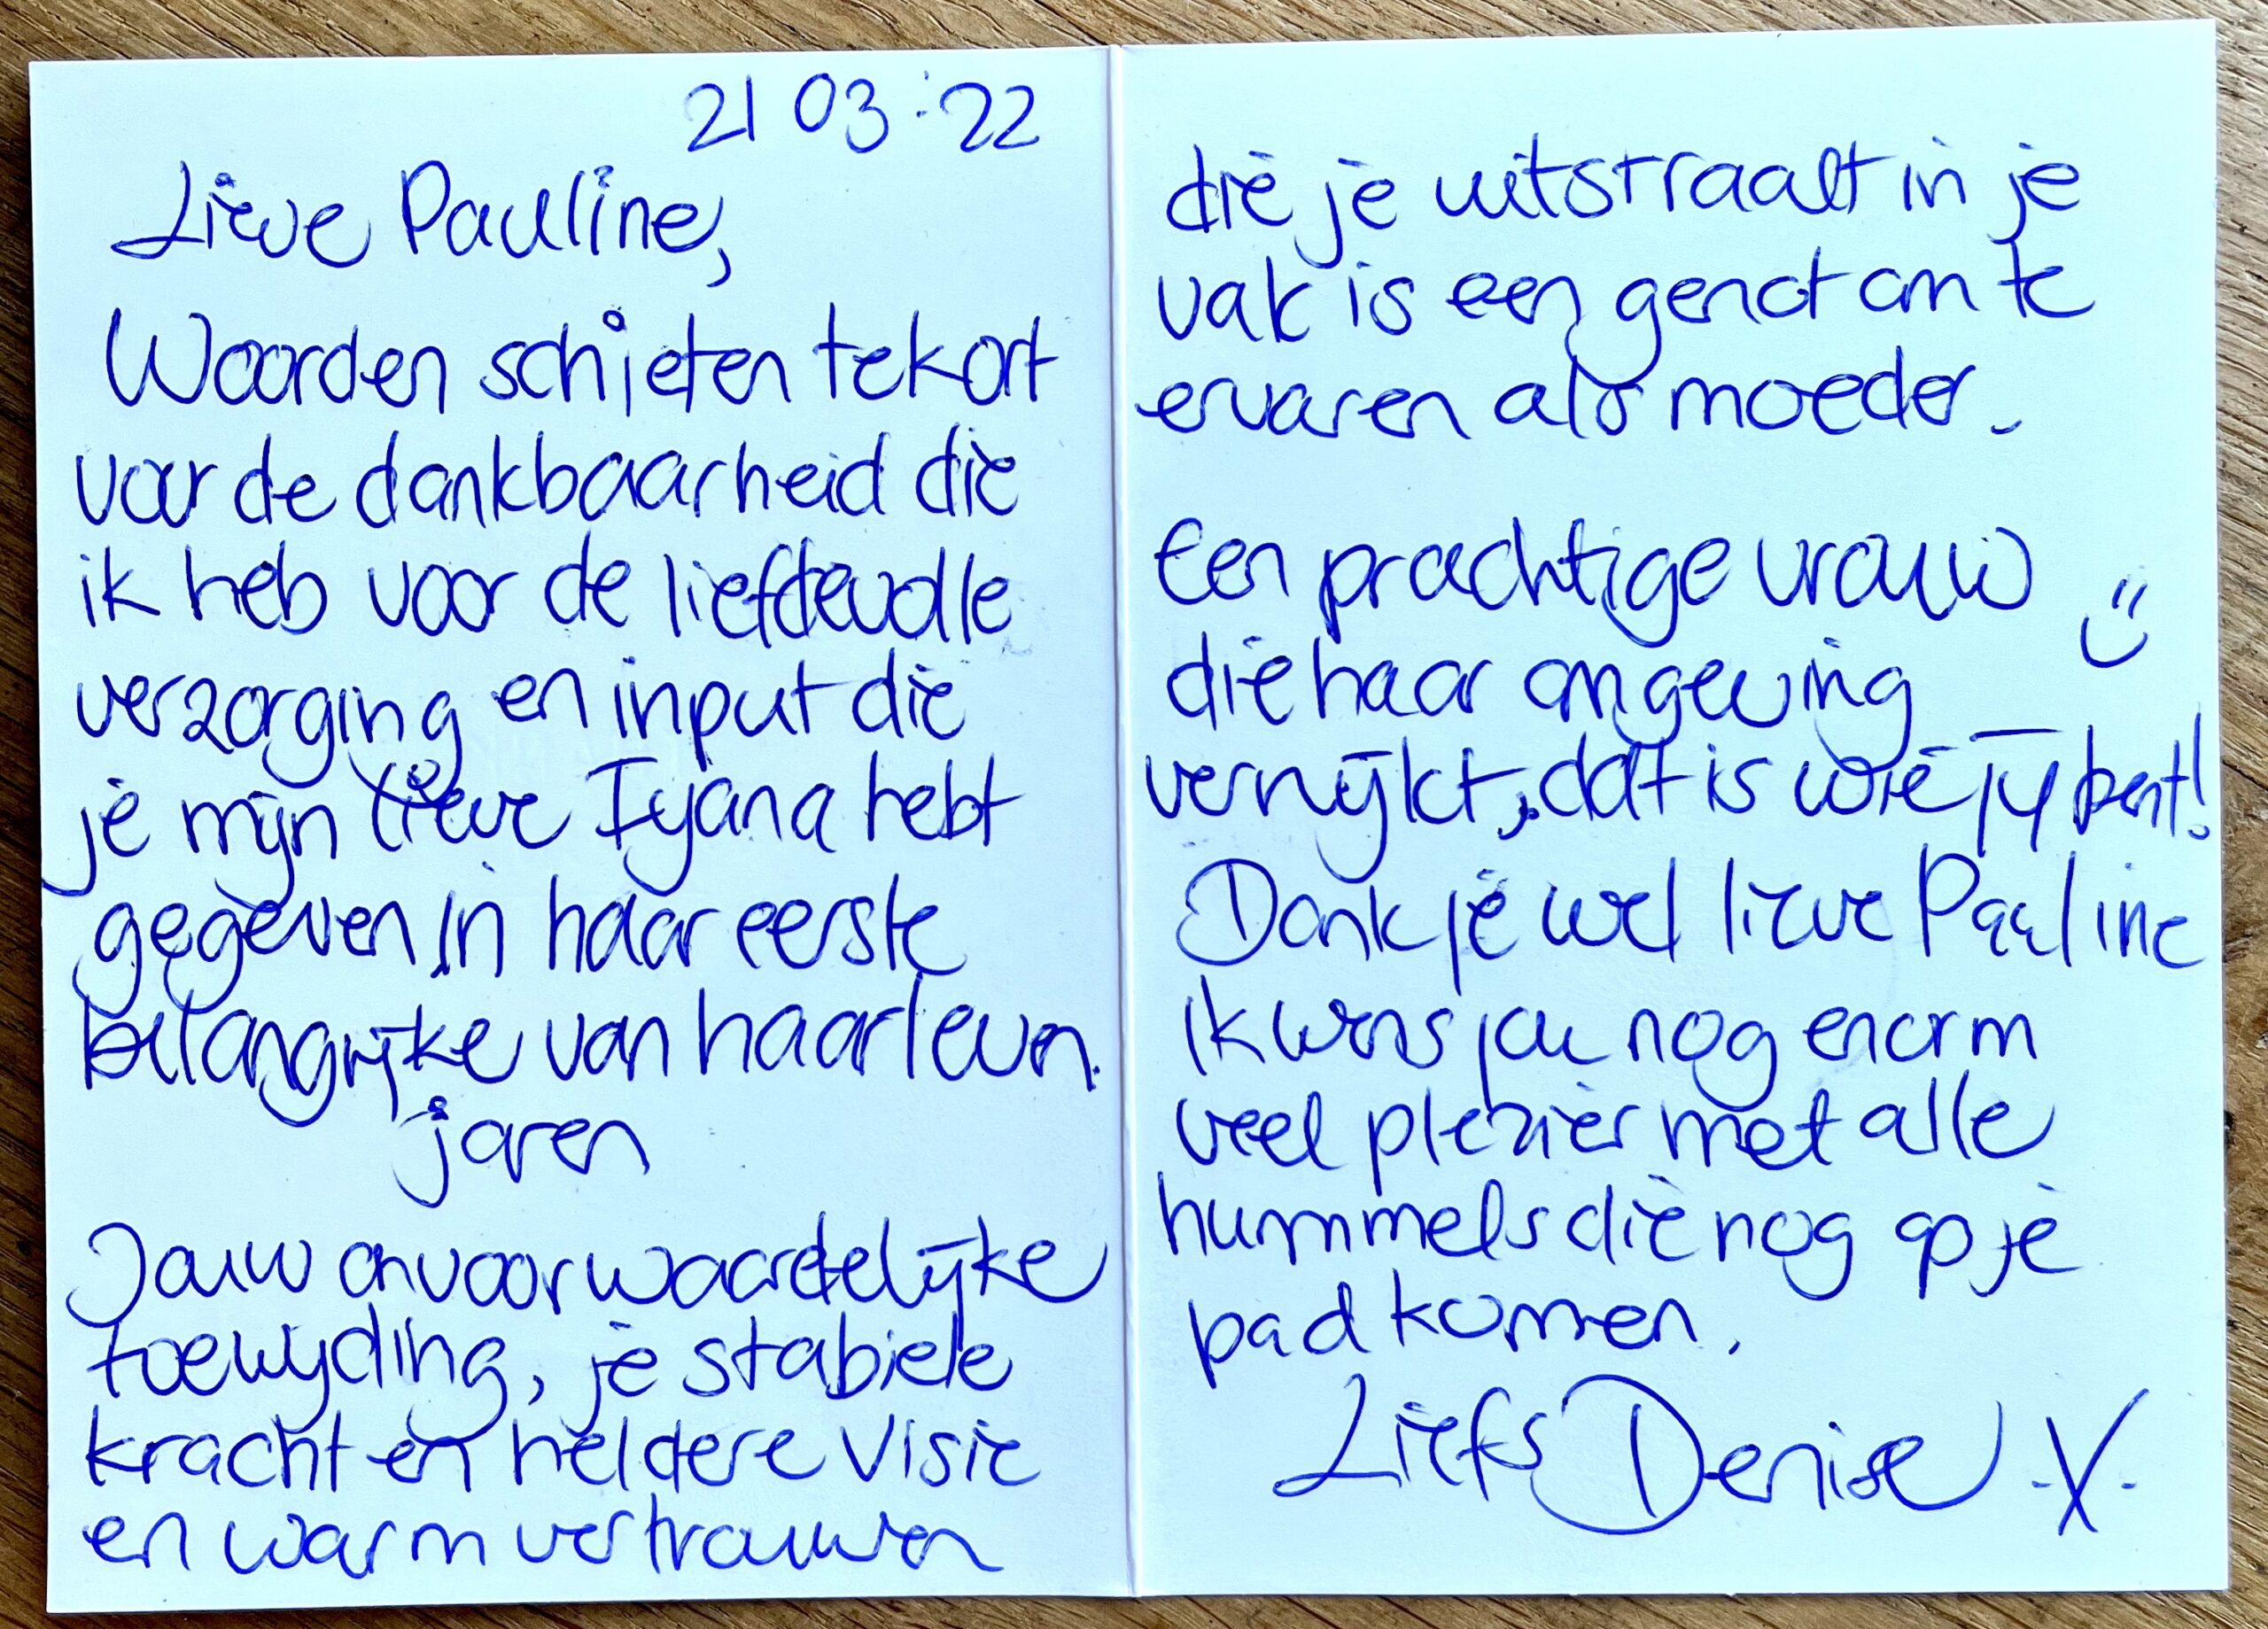 21 03 '22
Lieve Pauline,
Woorden schieten tekort
voor de dankbaarheid die
ik heb voor de liefdevolle
verzorging en input die
je mijn lieve Iyana hebt
gegeven in haar eerste
belangrijke van haar leven.
jaren
Jouw onvoorwaardelijke
toewijding, je stabiele
kracht en heldere visie
en warm vertrouwen
die je uitstraalt in je
vak is een genot om te
ervaren als moeder.
Een prachtige vrouw
die haar omgeving
verrijkt, dat is wie jij bent!
Dank je wel lieve Pauline
ik wens jou nog enorm
veel plezier met alle
hummels die nog op je
pad komen.
Liefs Denise X